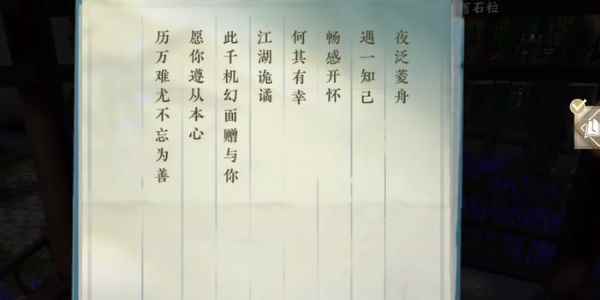 夜泛菱舟
遇一知己
畅感开怀
何其有幸
江湖诡谲
此千机幻面赠与你
愿你遵从本心
历万难尤不忘为善
石柱